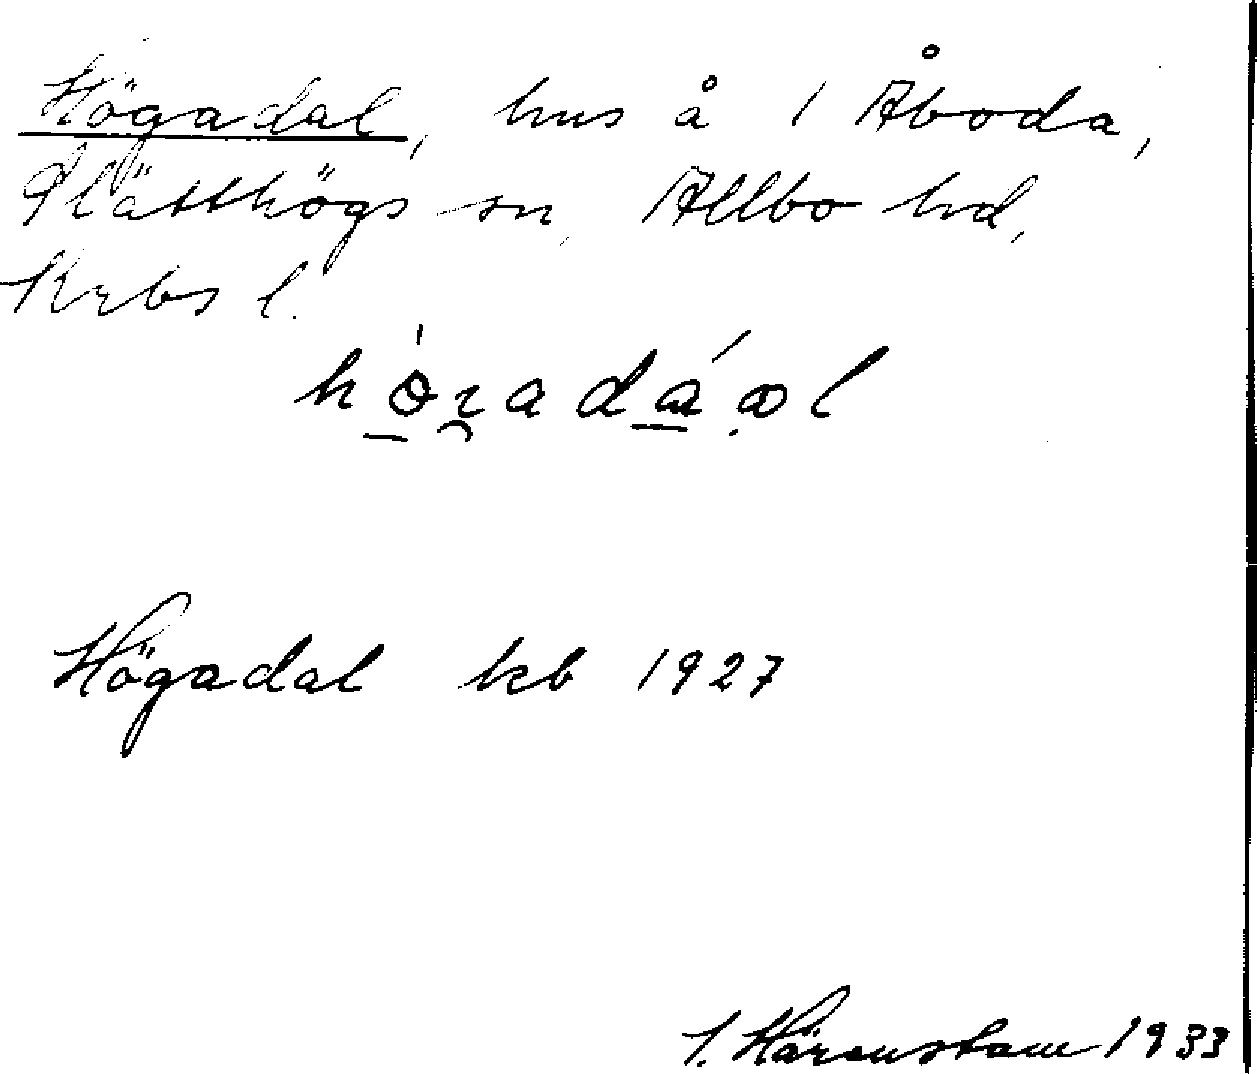 Högadal, hus å 1 Åboda,
Slätthögs sn, Allbo hd,
Krbs l.
Högadal kb 1927
S. Härenstam 1933